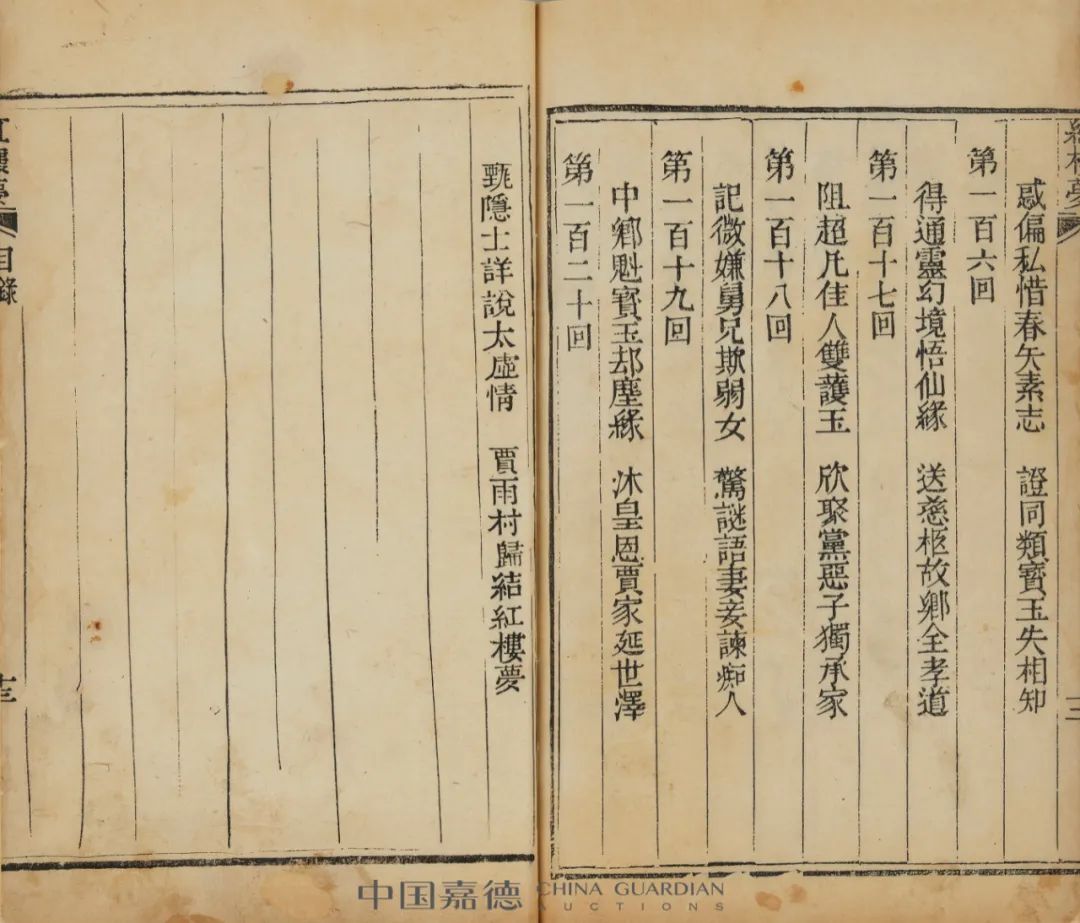 紅樓夢
感偏私惜春矢素志 證同類寶玉失相知
第一百六回
得通靈幻境悟仙緣 送慈柩故鄉全孝道
第一百十七回
阻超凡佳人雙護玉 欣聚黨惡子獨承家
第一百十八回
記微嫌舅兄欺弱女 驚謎語妻妾諫痴人
第一百十九回
中鄉魁寶玉却塵緣 沐皇恩賈家延世澤
第一百二十回
甄隱士詳說太虛情 賈雨村歸結紅樓夢
紅樓夢 目錄
中国嘉德 CHINA GUARDIAN
AUCTIONS